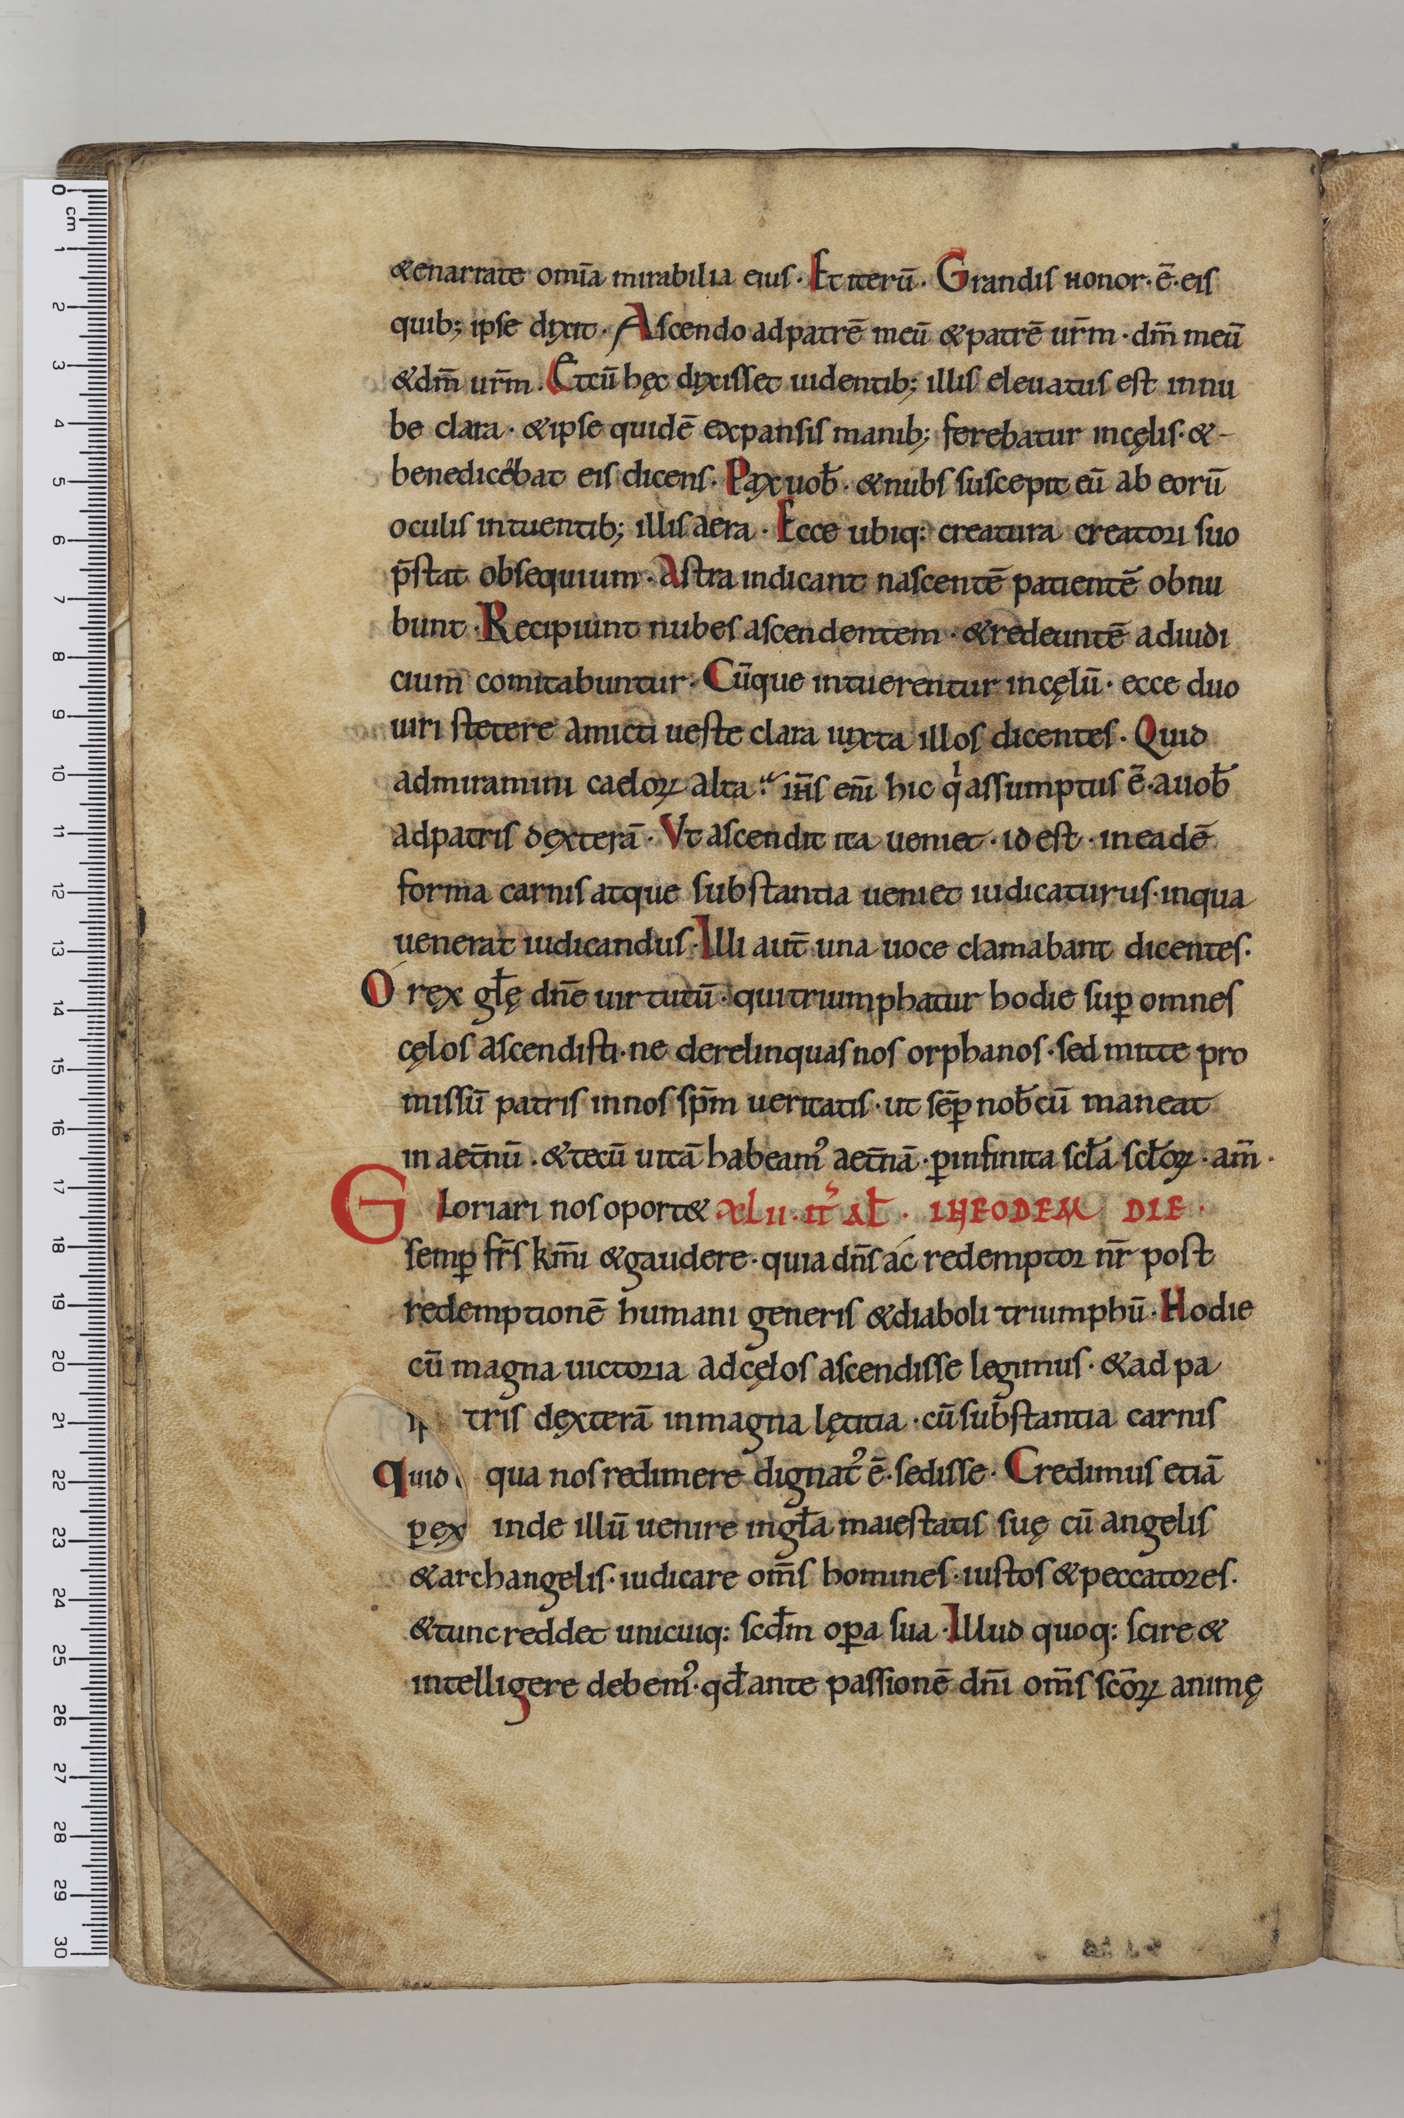 &enarrate om̄ia mirabilia eius · Et iterū · Grandis honor · ē · eis
quib; ipse dixit · Ascendo adpatrē meū &patrē ur̄m · dm̄ meū
&dm̄ ur̄m . Etcū hęc dixisset uidentib; illis eleuatus est innu
be clara · &ipse quidē expansis manib; ferebatur incęlis · & -
benedicebat eis dicens · Pax uob̄ · &nubs suscepit eū ab eorū
oculis intuentib; illis aera · Ecce ubiq: creatura creatori suo
p̄stat obsequium · Astra indicant nascentē patientē obnu
bunt · Recipiunt nubes ascendentem · &redeuntē adiudi
cium comitabuntur · Cūque intuerentur incęlū · ecce duo
uiri stetere amicti ueste clara iuxta illos dicentes · Quid
admiramini caeloꝝ alta ih̄s eni̅ hic qⁱ assumptus ē · auob̄
adpatris dexterā · Vt ascendit ita ueniet · id est · ineadē
forma carnis atque substantia ueniet iudicaturus · inqua
uenerat iudicandus · Illi aut̄ una uoce clamabant dicentes ·
O rex gl̄ę dn̄e uirtutū · quitriumphatur hodie sup̱ omnes
cęlos ascendisti · ne derelinquas nos orphanos · sed mitte pro
missū patris innos sp̄m ueritatis · ut sēp̱ nob̄cū maneat
in aet̄nū . &tecū uitā habeam᾽ aet̄nā · ꝑinfinita scl̄a scl̄oꝝ · am̄ ·
G loriari nos oport& xlii · it᾽ al̄ · inEODEM DIE ·
semꝑ fr̄s km̄i &gaudere · quia dn̄s ac redemptor nr̄ post
redemptionē humani generis &diaboli triumphū · Hodie
cū magna uictoria adcęlos ascendisse legimus · &ad pa
tris dexterā inmagna lętitia · cū substantia carnis
quid qua nos redimere dignat᾽ ē · sedisse · Credimus etiā
ꝑex inde illū uenire ingl̄a maiestatis suę cū angelis
&archangelis · iudicare om̄s homines · iustos &peccatores ·
&tunc reddet unicuiq: scd̄m oꝑa sua · Illud quoq: scire &
intelligere debem᾽ · qd̄ ante passionē dn̄i om̄s sc̄oꝝ animę